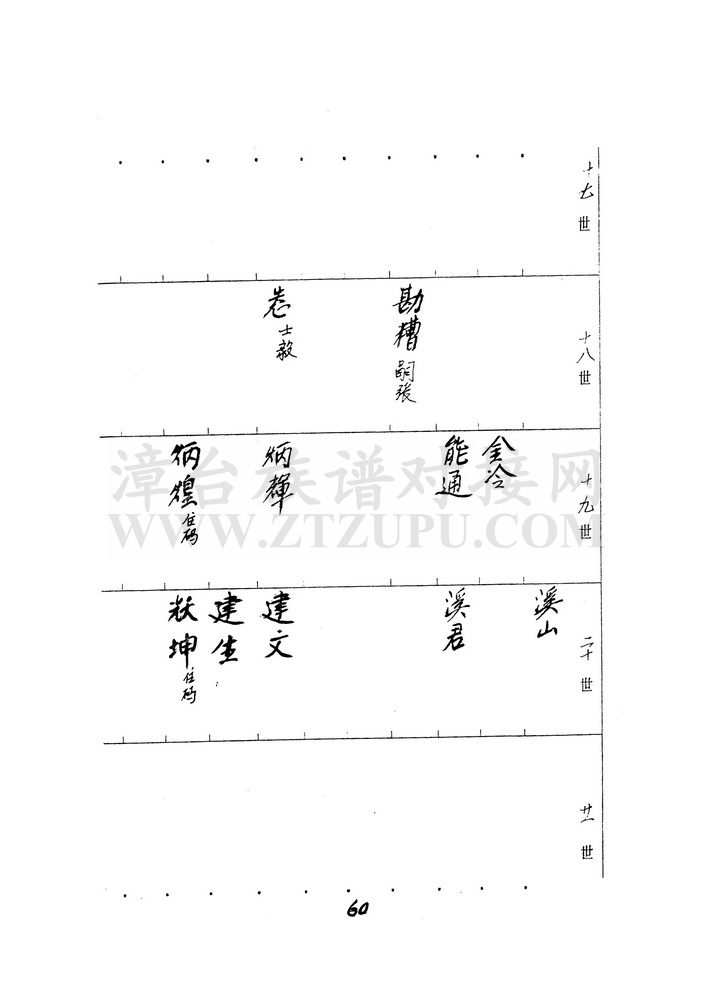 十七世
十八世
勘糟 嗣張
士毅
十九世
金冷
能通
炳輝
炳煌 住码
二十世
溪山
溪君
建文
建生
坤 住码
廿一世
60
漳台族谱对接网
WWW.ZTZUPU.COM